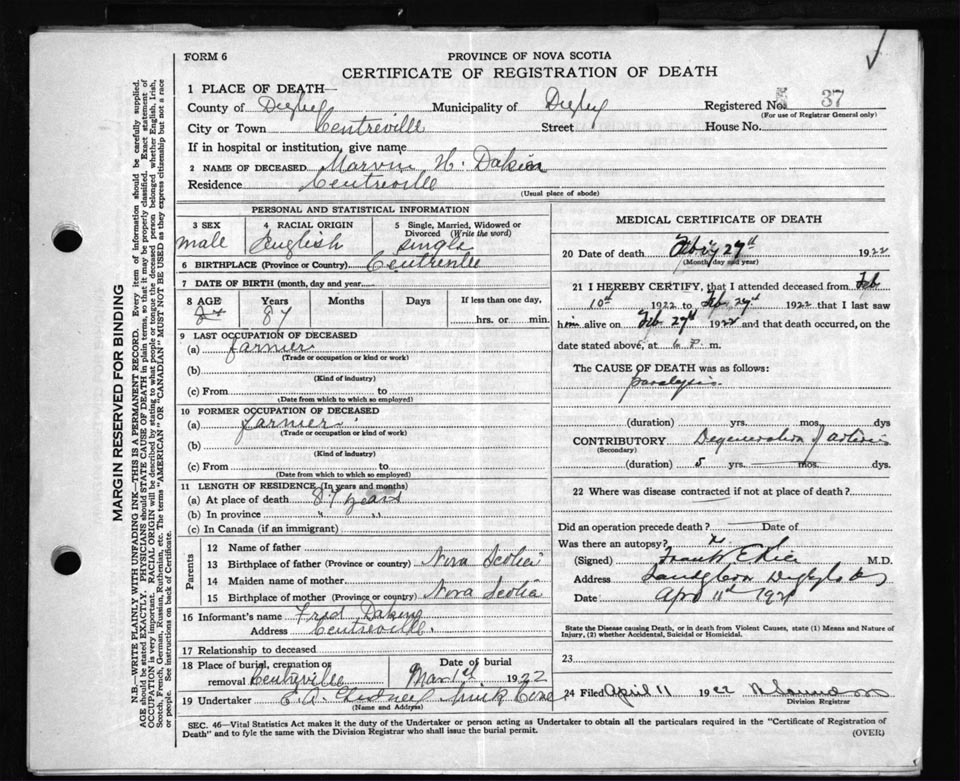 FORM 6
PROVINCE OF NOVA SCOTIA
CERTIFICATE OF REGISTRATION OF DEATH
1 PLACE OF DEATH—
County of Digby Municipality of Digby Registered No. 37
(For use of Registrar General only)
City or Town Centreville Street House No.
If in hospital or institution, give name
2 NAME OF DECEASED Marvin H. Dakin
Residence Centreville
(Usual place of abode)
PERSONAL AND STATISTICAL INFORMATION
3 SEX 4 RACIAL ORIGIN 5 Single, Married, Widowed or Divorced (Write the word)
male English single
6 BIRTHPLACE (Province or Country) Centreville
7 DATE OF BIRTH (month, day and year)
8 AGE Years Months Days If less than one day,
87 hrs. or min.
9 LAST OCCUPATION OF DECEASED
(a) farmer
(Trade or occupation or kind or work)
(b)
(Kind of industry)
(c) From to
(Date from which to which so employed)
10 FORMER OCCUPATION OF DECEASED
(a) farmer
(Trade or occupation or kind of work)
(b)
(Kind of industry)
(c) From to
(Date from which to which so employed)
11 LENGTH OF RESIDENCE (In years and months)
(a) At place of death 87 years
(b) In province " "
(c) In Canada (if an immigrant)
Parents
12 Name of father
13 Birthplace of father (Province or country) Nova Scotia
14 Maiden name of mother
15 Birthplace of mother (Province or country) Nova Scotia
16 Informant's name Fred Dakin
Address Centreville.
17 Relationship to deceased
18 Place of burial, cremation or removal Centreville Date of burial Mar 1st 1922
19 Undertaker E. A.
(Name and Address)
MEDICAL CERTIFICATE OF DEATH
20 Date of death Feby 27th 1922
(Month, day and year)
21 I HEREBY CERTIFY, that I attended deceased from Feb
10th 1922 to Feb 27th 1922 that I last saw
him alive on Feb 27th 1922 and that death occurred, on the
date stated above, at 6 P. m.
The CAUSE OF DEATH was as follows:
paralysis
(duration) yrs. mos. dys
CONTRIBUTORY Degeneration of arteries
(Secondary)
(duration) 5 yrs. mos. dys.
22 Where was disease contracted if not at place of death?
Did an operation precede death? Date of
Was there an autopsy?
(Signed) Frank E Rice M.D.
Address Sandy Cove Digby Co
Date Apr 11th 192
State the Disease causing Death, or in death from Violent Causes, state (1) Means and Nature of
Injury, (2) whether Accidental, Suicidal or Homicidal.
23
24 Filed April 11 1922
Division Registrar
SEC. 46—Vital Statistics Act makes it the duty of the Undertaker or person acting as Undertaker to obtain all the particulars required in the "Certificate of Registration of
Death" and to fyle the same with the Division Registrar who shall issue the burial permit.
(OVER)
MARGIN RESERVED FOR BINDING
N.B.—WRITE PLAINLY WITH UNFADING INK—THIS IS A PERMANENT RECORD. Every item of information should be carefully supplied.
AGE should be stated EXACTLY. PHYSICIANS should STATE CAUSE OF DEATH in plain terms, so that it may be properly classified. Exact statement of
OCCUPATION is very important. RACIAL ORIGIN will be described by stating to what people or tongue the deceased person belonged whether English, Irish,
Scotch, French, German, Russian, Ruthenian, etc. The terms "AMERICAN" OR "CANADIAN" MUST NOT BE USED as they express citizenship but not a race
or people. See instructions on back of Certificate.